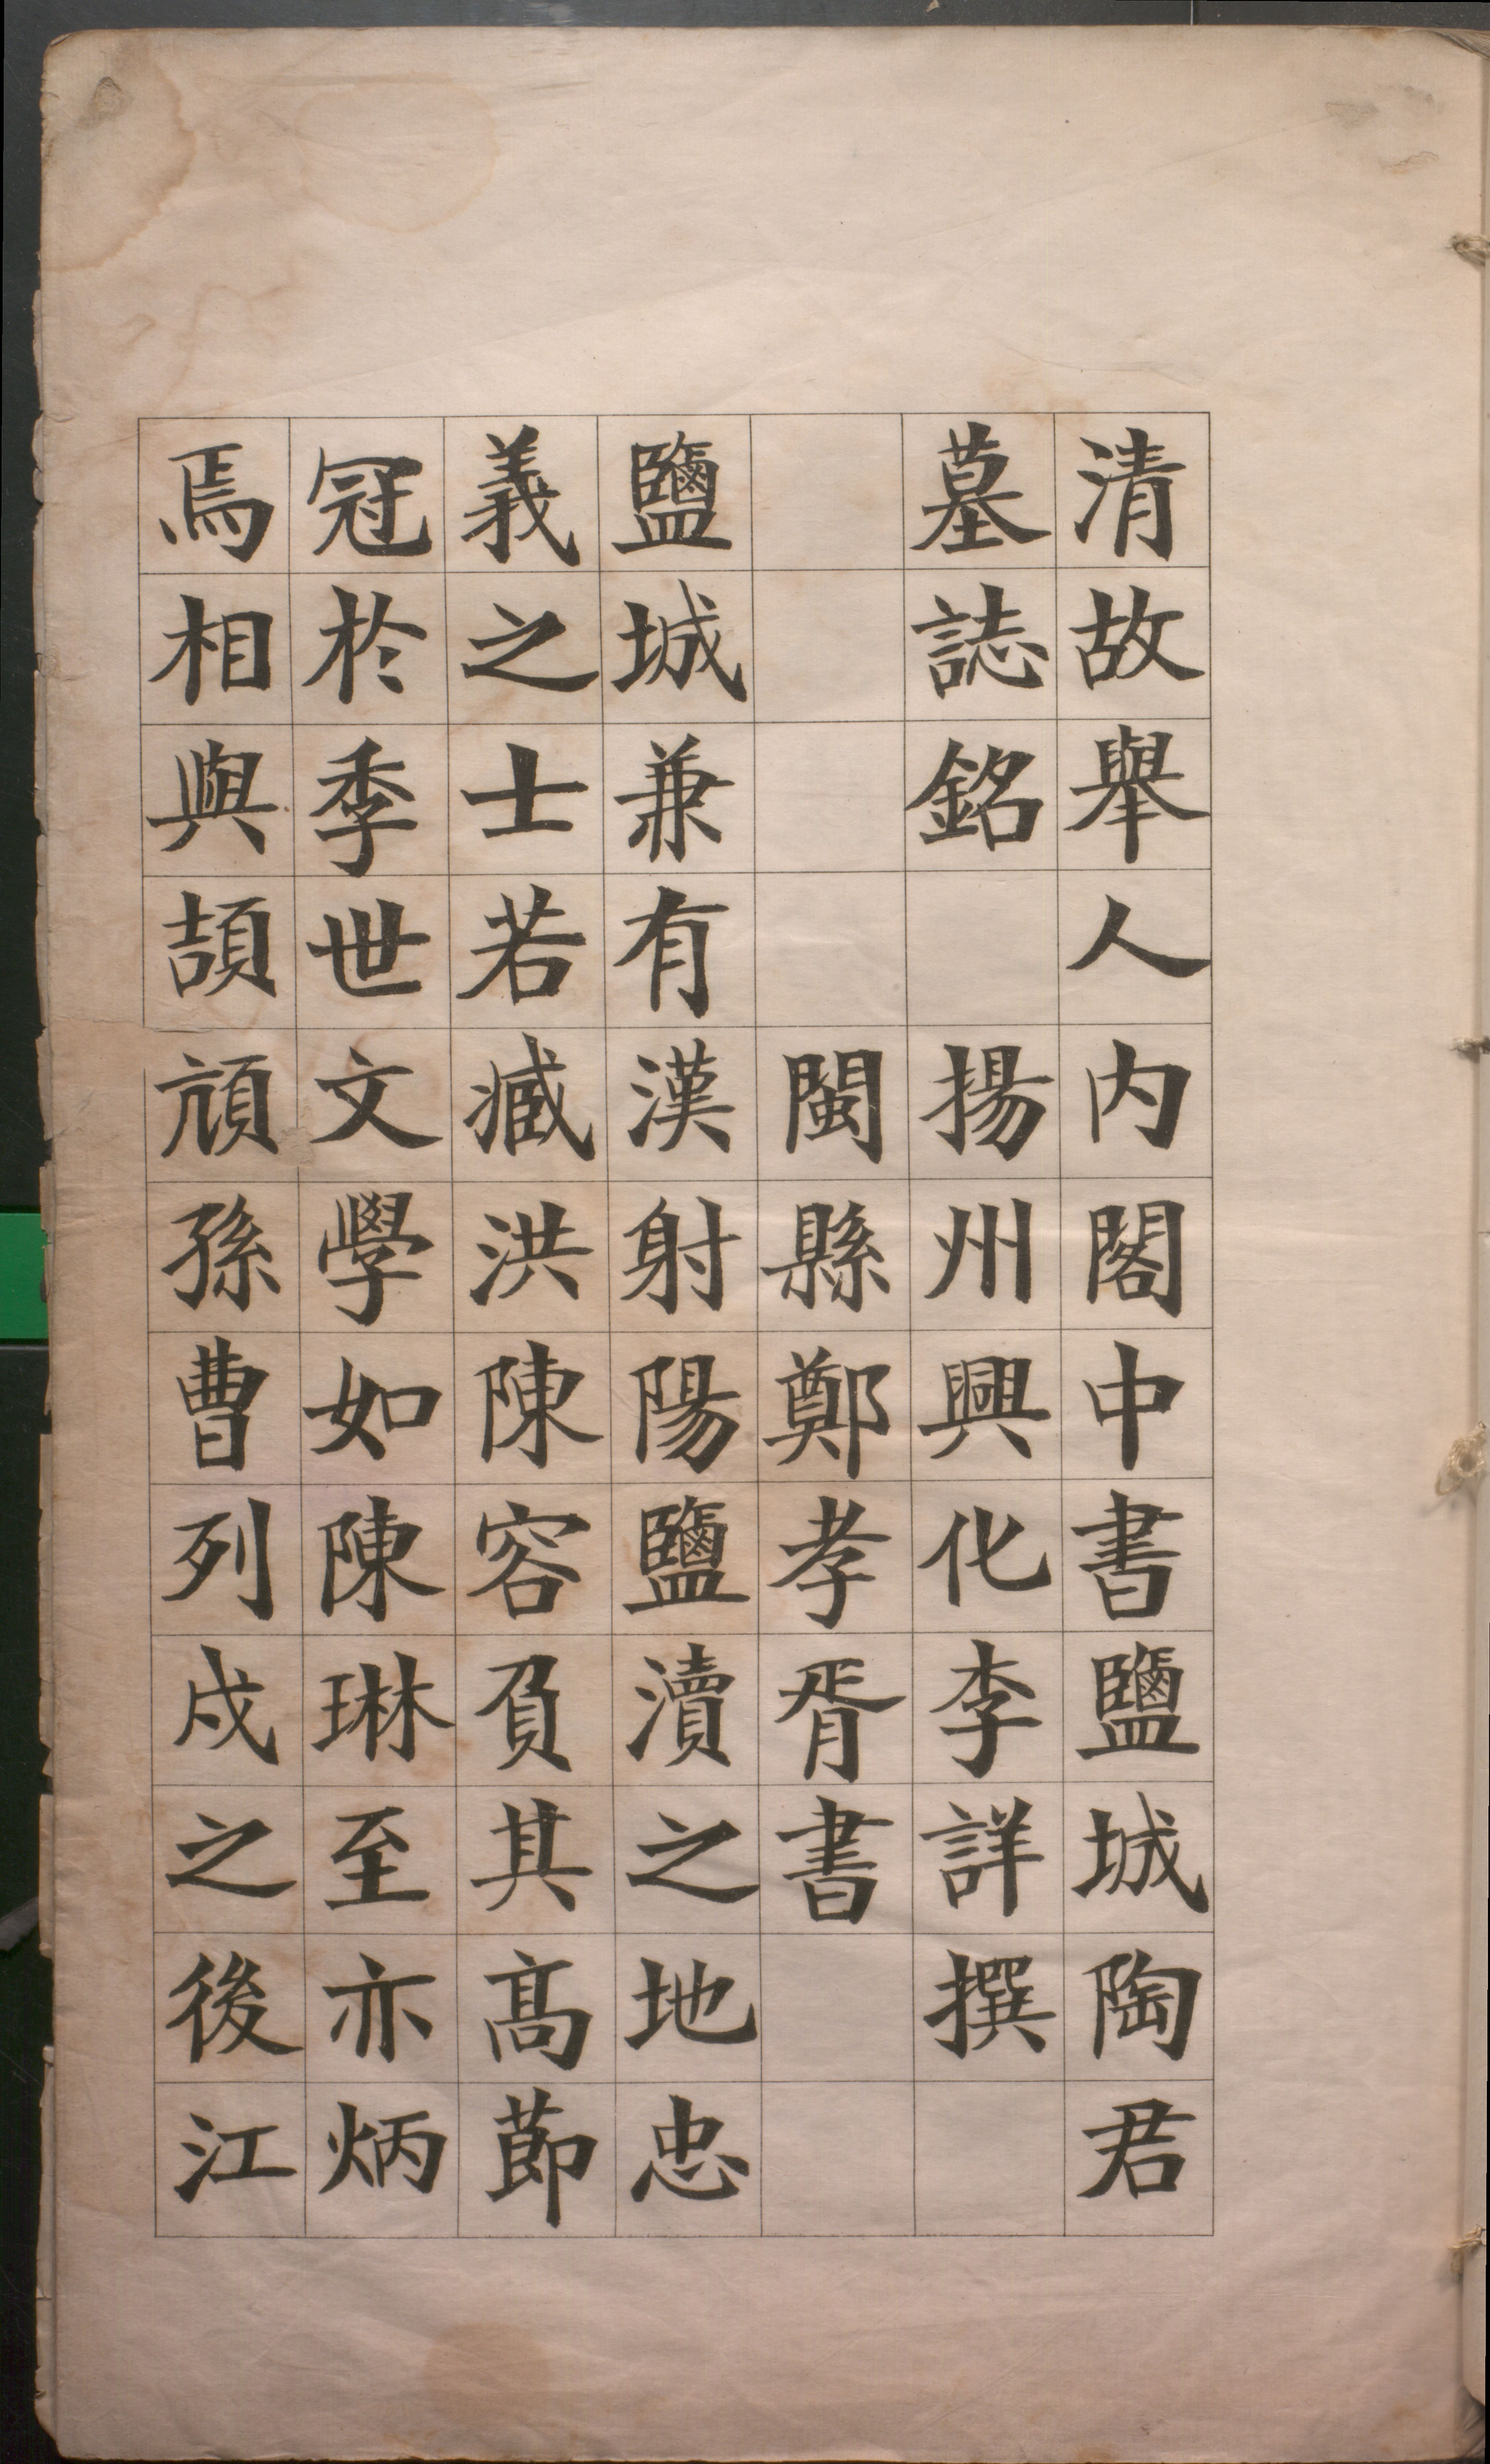 清故舉人内閣中書鹽城陶君
墓誌銘 揚州興化李詳撰
閩縣鄭孝胥書
鹽城兼有漢射陽鹽瀆之地忠
義之士若臧洪陳容負其高節
冠於季世文學如陳琳至亦炳
焉相與頡頏孫曹列戍之後江